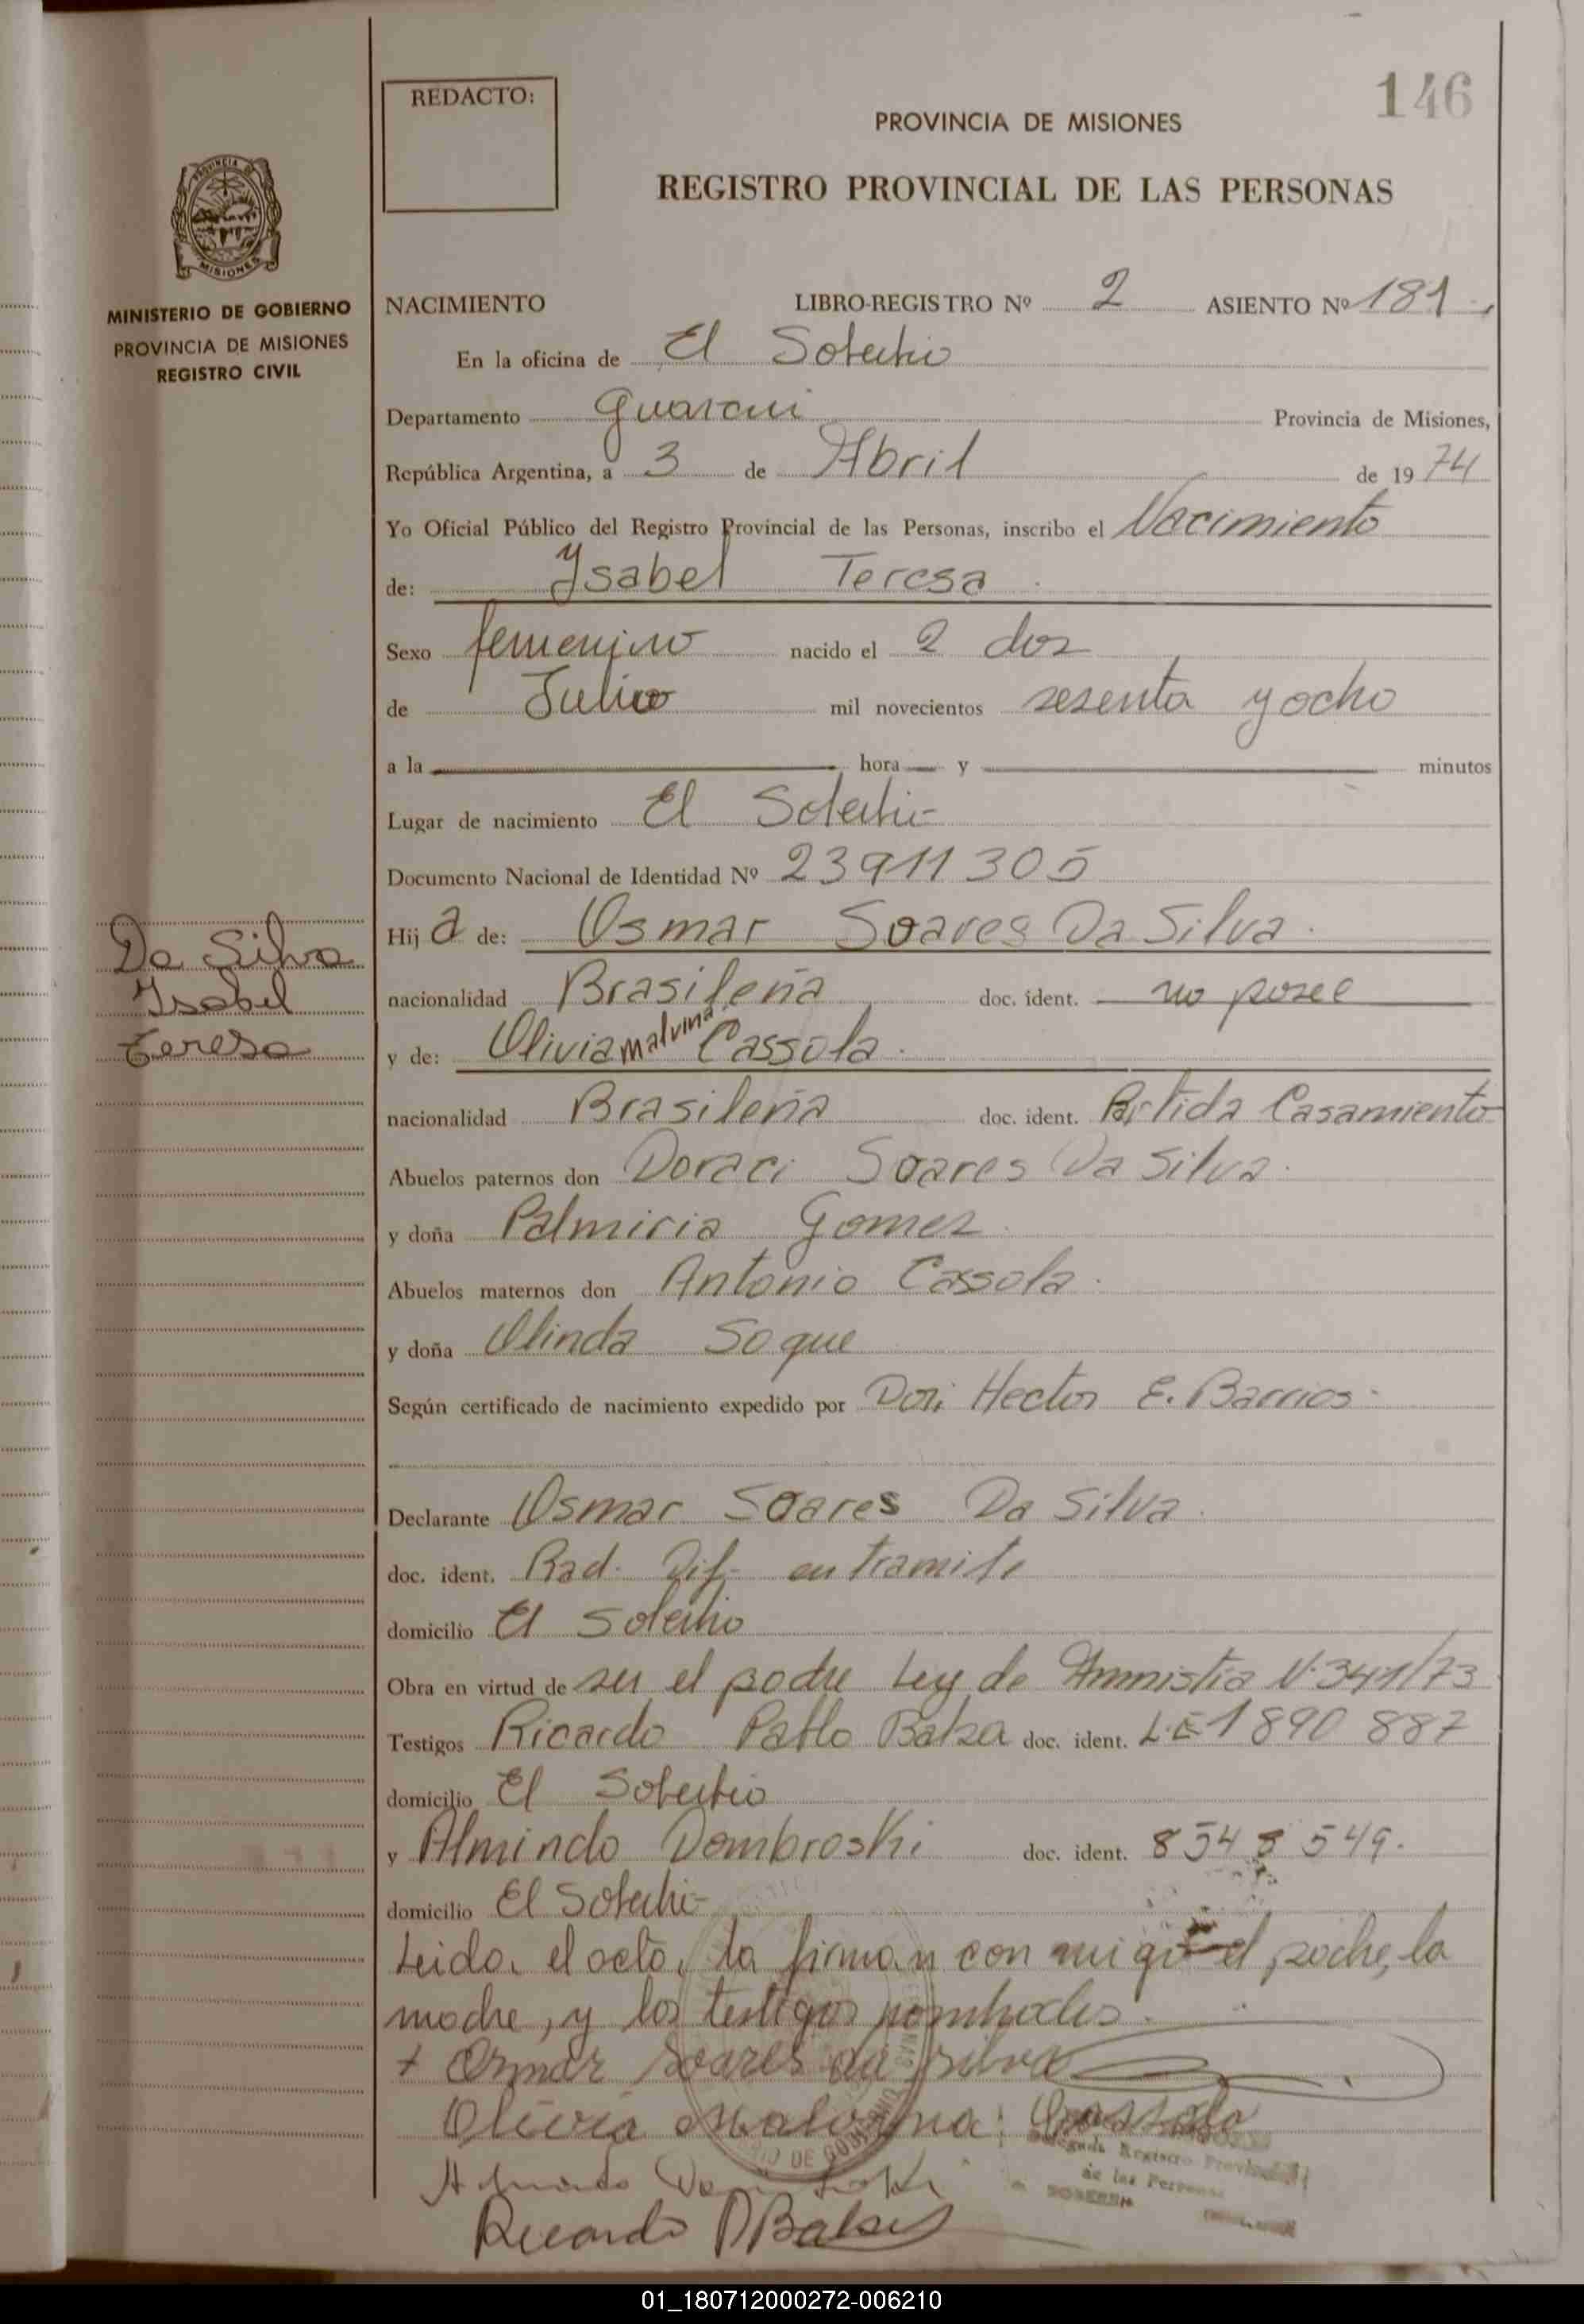 146
REDACTO:
PROVINCIA DE MISIONES
REGISTRO PROVINCIAL DE LAS PERSONAS
MINISTERIO DE GOBIERNO
PROVINCIA DE MISIONES
REGISTRO CIVIL
NACIMIENTO LIBRO-REGISTRO Nº 2 ASIENTO Nº 181
En la oficina de El Soberbio
Departamento Guarani Provincia de Misiones,
República Argentina, a 3 de Abril de 1974
Yo Oficial Público del Registro Provincial de las Personas, inscribo el Nacimiento
de: Ysabel Teresa
Sexo femenino nacido el 2 dos
de Julio mil novecientos sesenta y ocho
a la hora y minutos
Lugar de nacimiento El Soberbio
Documento Nacional de Identidad Nº 23911305
Hija de: Osmar Soares Da Silva
nacionalidad Brasileña doc. ident. no posee
y de: Olivia malvina Cassola
nacionalidad Brasileña doc. ident. Partida Casamiento
Abuelos paternos don Doraci Soares Da Silva
y doña Palmiria Gomez
Abuelos maternos don Antonio Cassola
y doña Olinda Soque
Según certificado de nacimiento expedido por Don Hector E. Barrios
Declarante Osmar Soares Da Silva
doc. ident. Rad. Dif. en tramite
domicilio El Soberbio
Obra en virtud de ser el padre Ley de Amnistia N. 341/73
Testigos Ricardo Pablo Balsa doc. ident. L.E 1890 887
domicilio El Soberbio
y Almindo Dombroski doc. ident. 8548549.
domicilio El Soberbio
Leida el acta, la firman con migo el padre, la
madre, y los testigos nombrados.
+ Osmar Soares da silva
Olivia Malvina: Cassola
Almindo Dombroski
Ricardo P Balsa
Da Silva
Isabel
Teresa
Registro Provincial
de las Personas
01_180712000272-006210